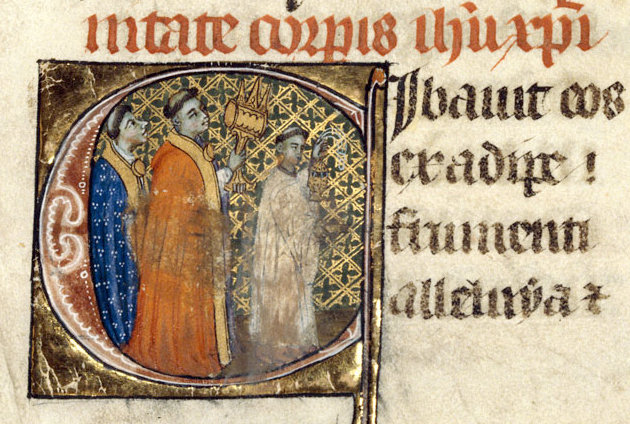 nitate corpis ihū xpī
Cibauit eos
ex adipe :
frumenti
alleluya ⁊